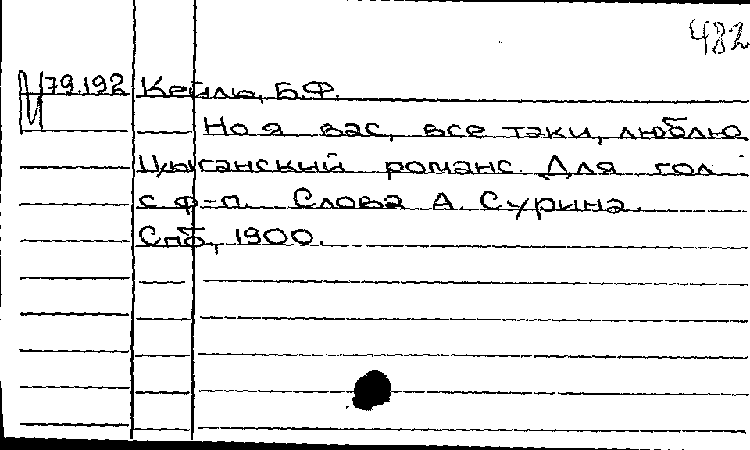 482
79.192 Кейль, Б.Ф.
Но я вас, все таки, люблю
Цыганский романс. Для гол
с ф-п. Слова А. Сурина.
Спб, 1900.